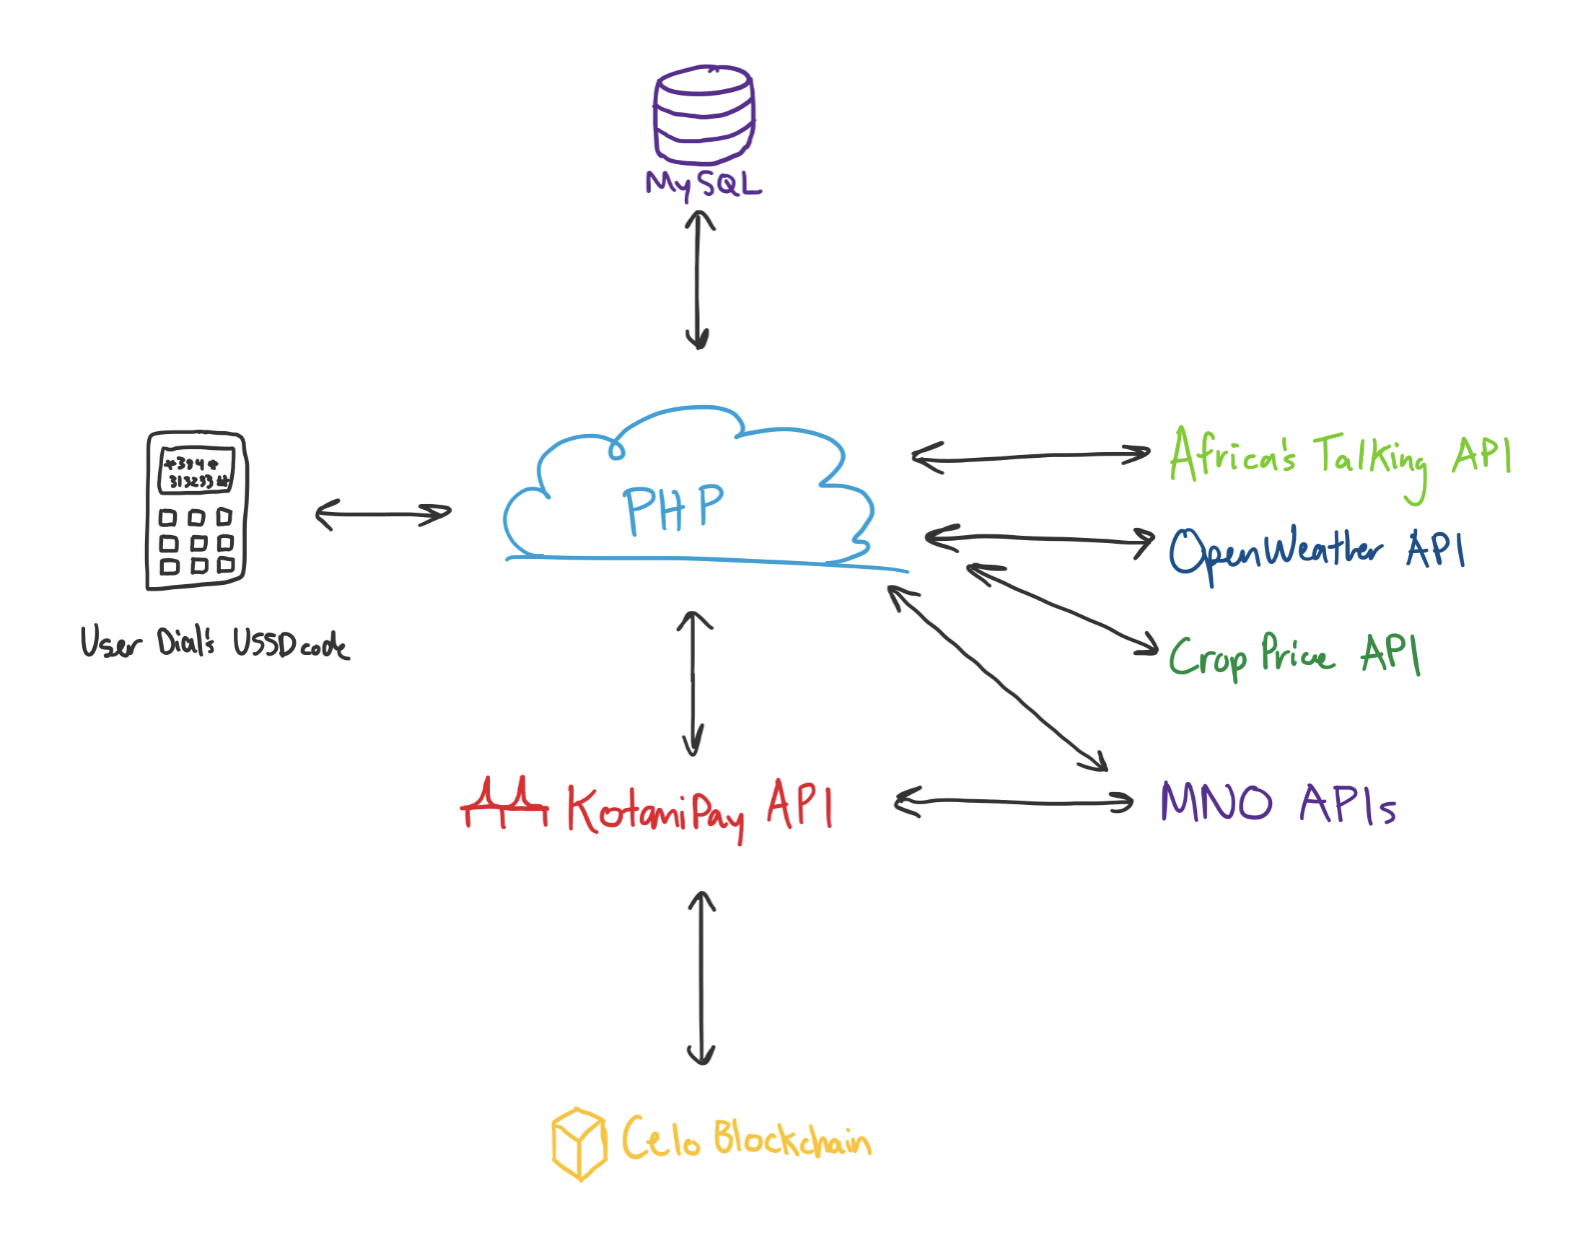 MySQL
*384*
313233#
User Dial's USSD code
PHP
Africa's Talking API
OpenWeather API
Crop Price API
KotaniPay API
MNO APIs
Celo Blockchain